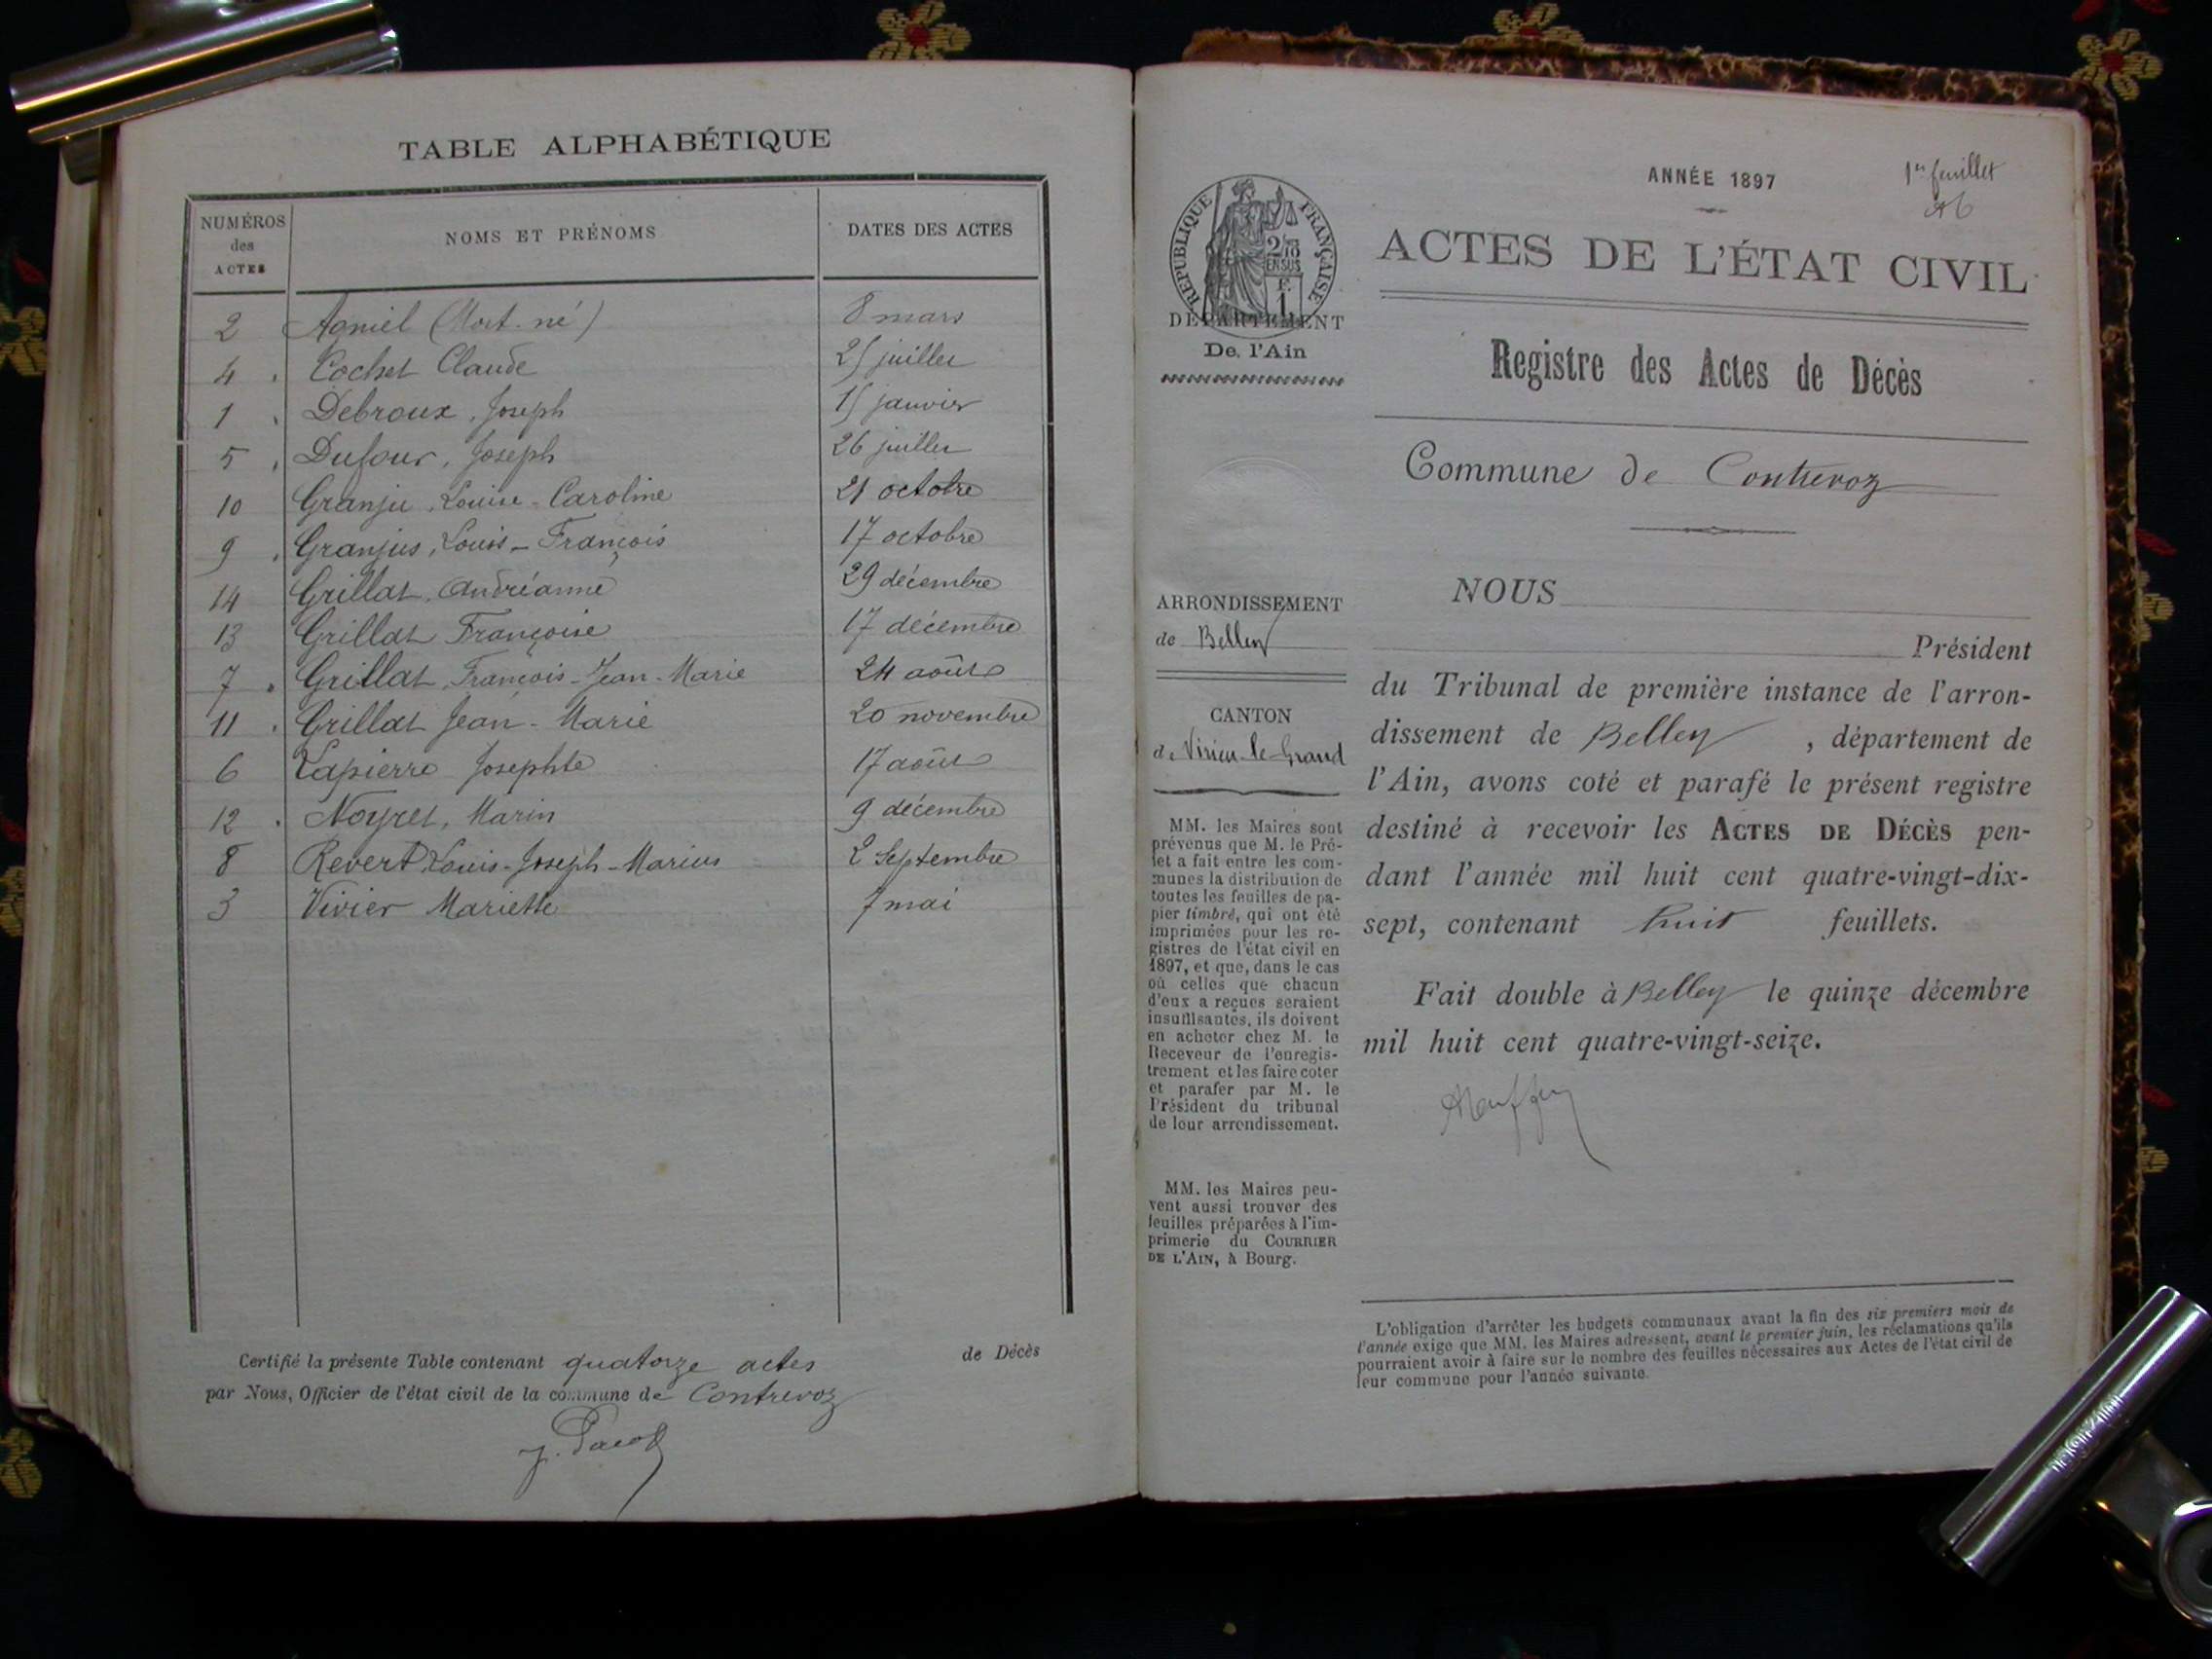 TABLE ALPHABÉTIQUE
NUMÉROS
des
ACTES
NOMS ET PRÉNOMS
DATES DES ACTES
2 Agniel (Mort-né) 8 mars
4 Cochet Claude 25 juillet
1 Debroux, Joseph 15 janvier
5 Dufour, Joseph 26 juillet
10 Granju, Louise-Caroline 21 octobre
9 Granjus, Louis-François 17 octobre
14 Grillat, Andréanne 29 décembre
13 Grillat Françoise 17 décembre
7 Grillat, François-Jean-Marie 24 août
11 Grillat Jean-Marie 20 novembre
6 Lapierre Josephte 17 août
12 Noyret, Marin 9 décembre
8 Revert, Louis-Joseph-Marius 2 Septembre
3 Vivier Mariette 7 mai
Certifié la présente Table contenant quatorze actes de Décès
par Nous, Officier de l'état civil de la commune de Contrevoz
ANNÉE 1897
1er feuillet
RÉPUBLIQUE FRANÇAISE
2/10
EN SUS
F.
1
DÉPARTEMENT
De l'Ain
ACTES DE L'ÉTAT CIVIL
Registre des Actes de Décès
Commune de Contrevoz
ARRONDISSEMENT
de Belley
CANTON
de Virieu-le-Grand
MM. les Maires sont
prévenus que M. le Pré-
fet a fait entre les com-
munes la distribution de
toutes les feuilles de pa-
pier timbré, qui ont été
imprimées pour les re-
gistres de l'état civil en
1897, et que, dans le cas
où celles que chacun
d'eux a reçues seraient
insuffisantes, ils doivent
en acheter chez M. le
Receveur de l'enregis-
trement et les faire coter
et parafer par M. le
Président du tribunal
de leur arrondissement.
MM. les Maires peu-
vent aussi trouver des
feuilles préparées à l'im-
primerie du COURRIER
DE L'AIN, à Bourg.
NOUS
Président
du Tribunal de première instance de l'arron-
dissement de Belley, département de
l'Ain, avons coté et parafé le présent registre
destiné à recevoir les ACTES DE DÉCÈS pen-
dant l'année mil huit cent quatre-vingt-dix-
sept, contenant huit feuillets.
Fait double à Belley le quinze décembre
mil huit cent quatre-vingt-seize.
L'obligation d'arrêter les budgets communaux avant la fin des six premiers mois de
l'année exige que MM. les Maires adressent, avant le premier juin, les réclamations qu'ils
pourraient avoir à faire sur le nombre des feuilles nécessaires aux Actes de l'état civil de
leur commune pour l'année suivante.